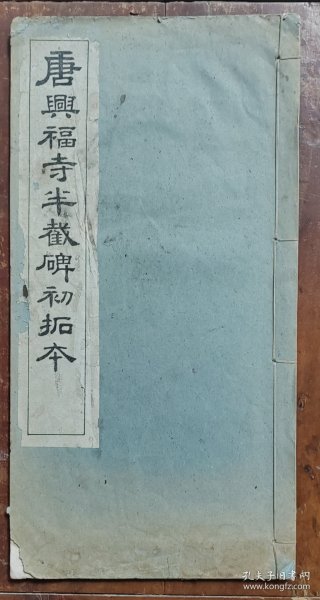 唐興福寺半截碑初拓本
孔夫子旧书网
www.kongfz.com